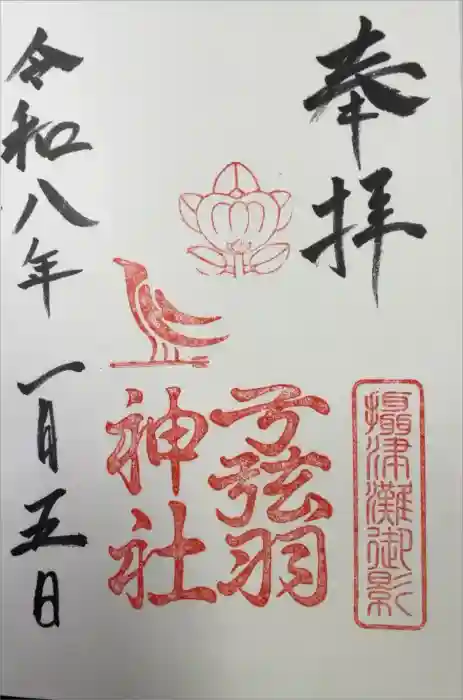 奉拝
摂津灘御影
弓弦羽
神社
令和八年 一月五日